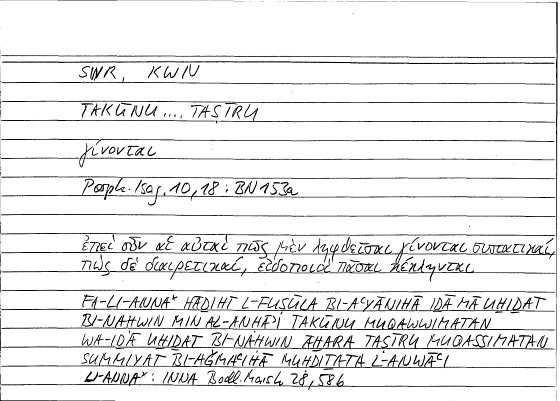 SWR, KWN
TAKŪNU .... TAṢĪRU
γίνονται
Porph. Isag. 10, 18 : BN 153a
ἐπεὶ οὖν αἱ αὐταὶ πῶς μὲν ληφθεῖσαι γίνονται συστατικαί,
πῶς δὲ διαιρετικαί, εἰδοποιοὶ πᾶσαι κέκληνται
FA-LI-ANNAˣ HĀḎIHI L-FUṢŪLA BI-AʿYĀNIHĀ IḎĀ MĀ UḪIḎAT
BI-NAḤWIN MIN AL-ANḤĀʾI TAKŪNU MUQAWWIMATAN
WA-IḎĀ UḪIḎAT BI-NAḤWIN ĀḪARA TAṢĪRU MUQASSIMATAN
SUMMIYAT BI-AǦMAʿIHĀ MUḤDIṮATA L-ANWĀʿI
LI-ANNAˣ : INNA Bodl. Marsh 28, 58b